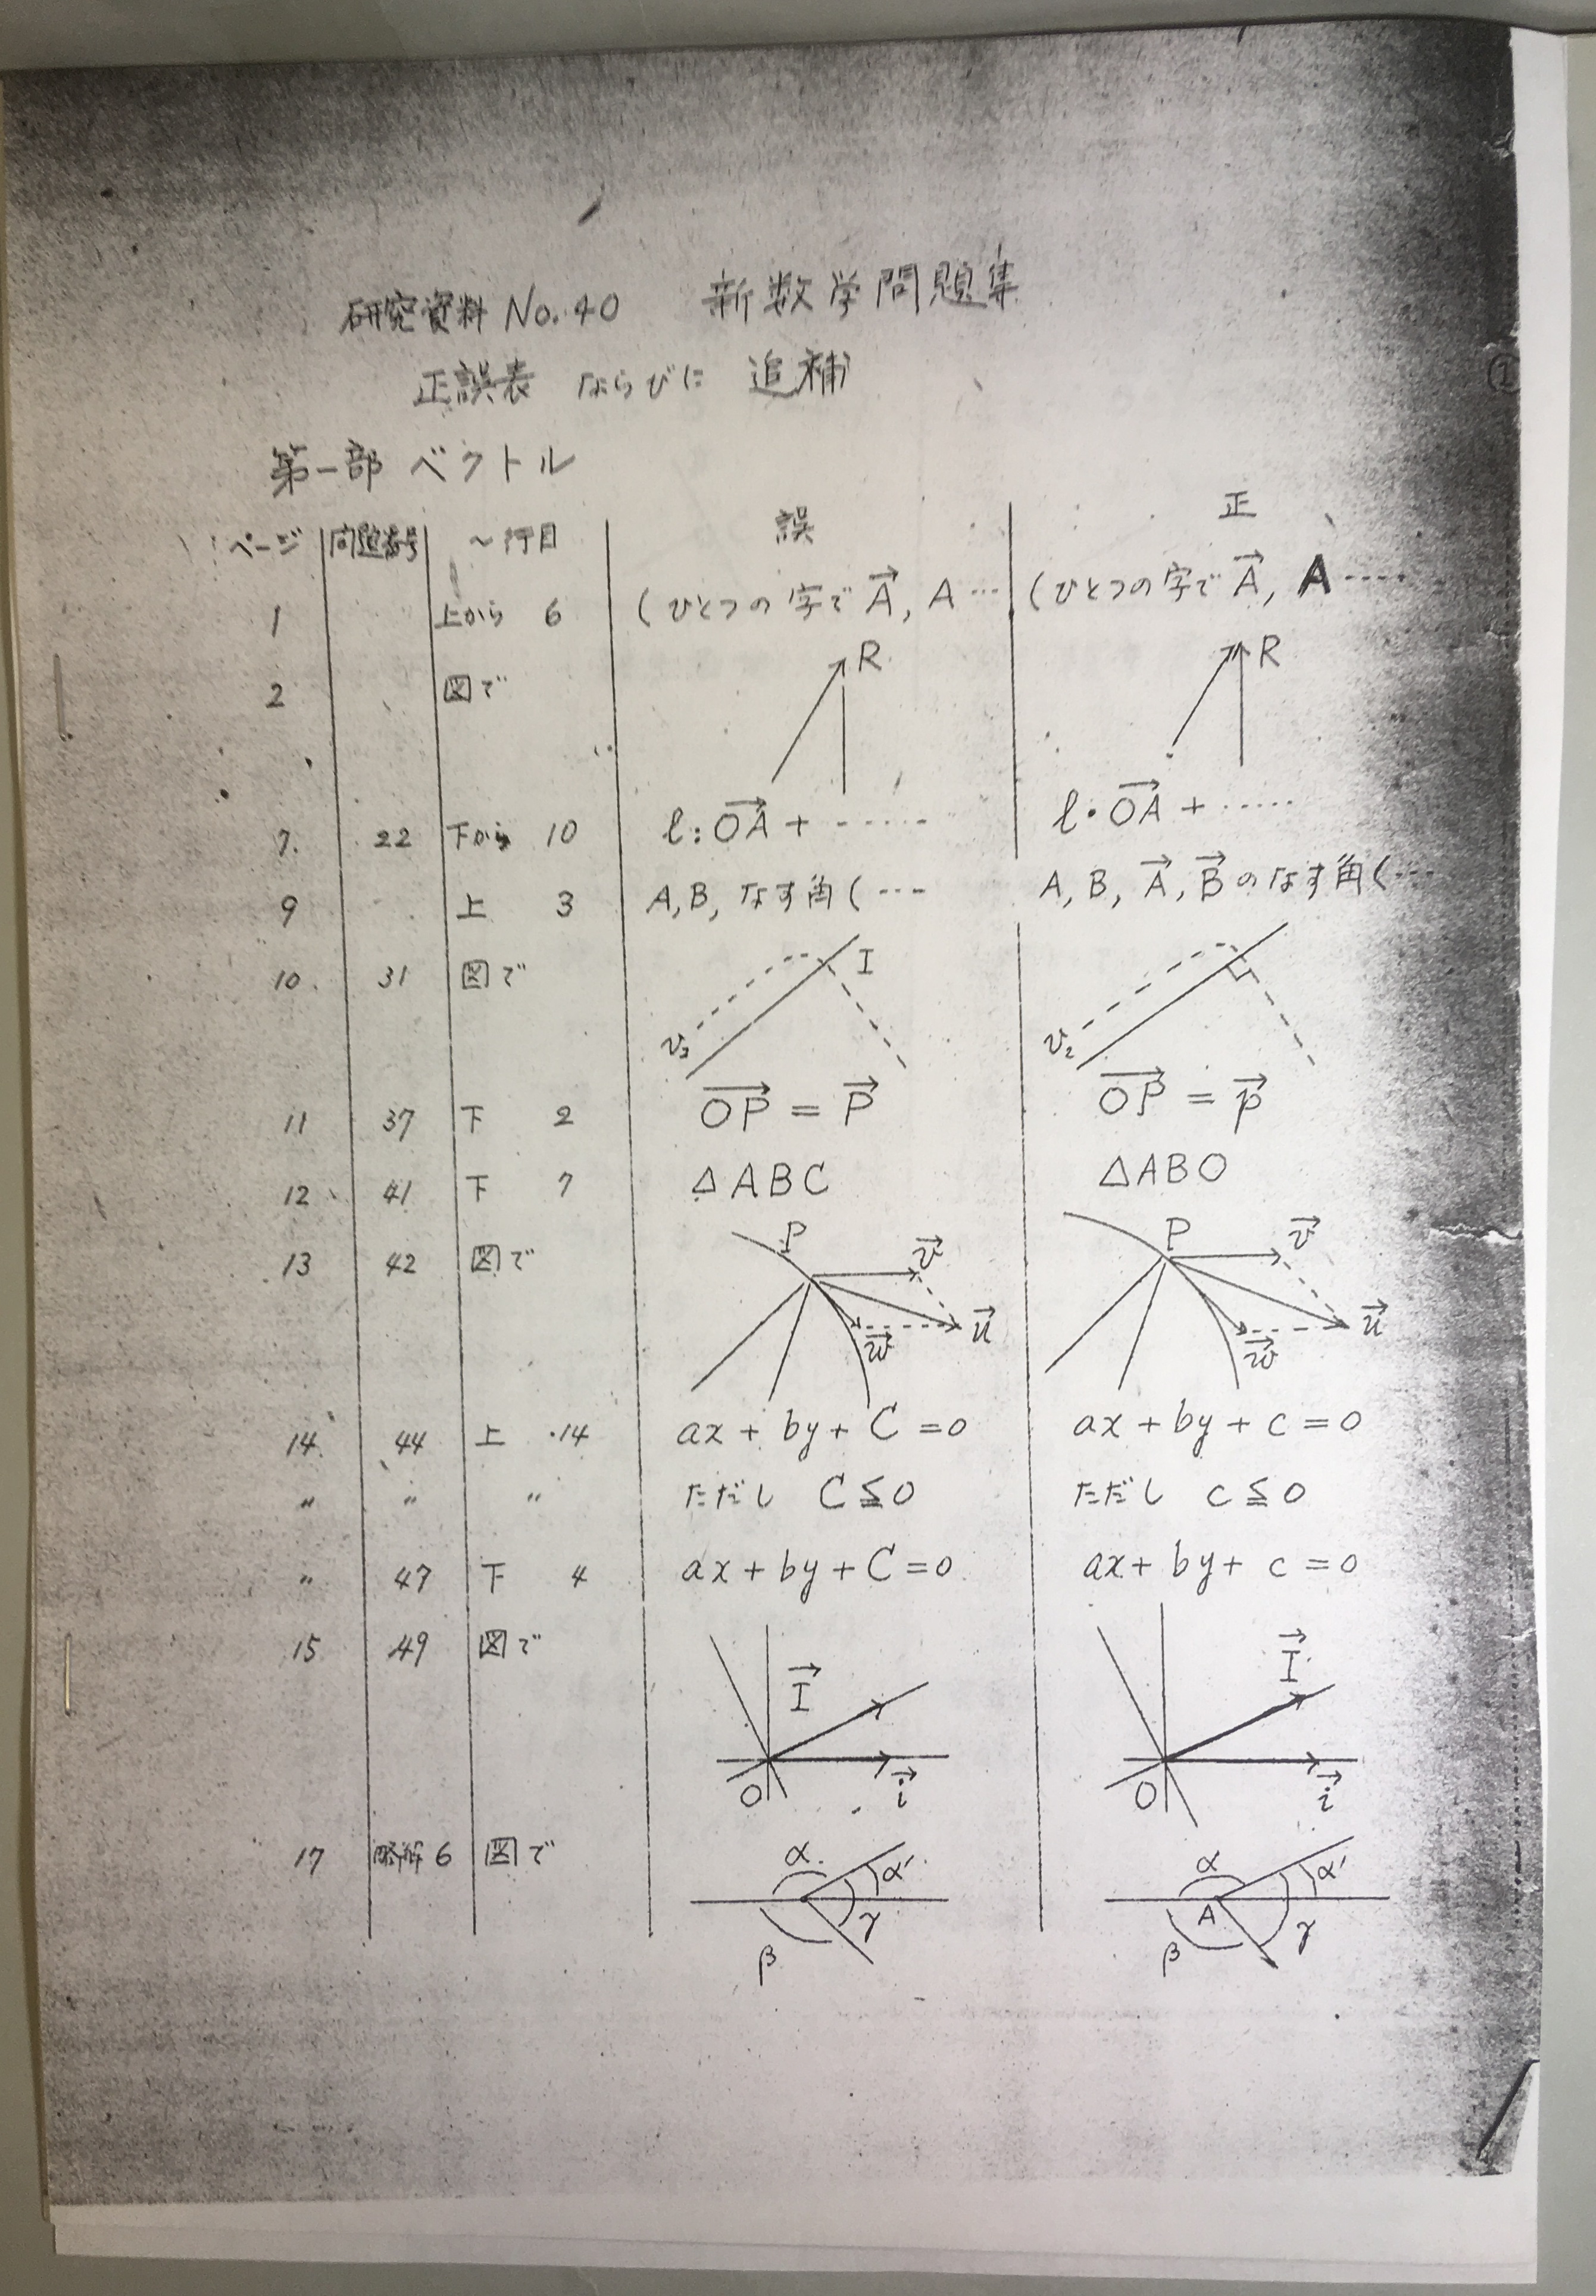 研究資料 No.40 新数学問題集
正誤表 ならびに 追補
①
第一部 ベクトル
ページ 問題番号 〜行目 誤 正
1 上から 6 (ひとつの字で A⃗, A … (ひとつの字で A⃗, A ‥‥
2 図で R R
7. 22 下から 10 ℓ:OA⃗ + ‥‥‥ ℓ・OA⃗ + ‥‥‥
9 上 3 A, B, なす角(… A, B, A⃗, B⃗のなす角(…
10. 31 図で I v₃ v₂
11 37 下 2 OP⃗ = P⃗ OP⃗ = p⃗
12 41 下 7 △ABC △ABO
13 42 図で P v⃗ u⃗ w⃗ P v⃗ u⃗ w⃗
14. 44 上 14 ax + by + C = 0 ax + by + c = 0
〃 〃 〃 ただし C≦0 ただし c≦0
〃 47 下 4 ax + by + C = 0 ax + by + c = 0
15 49 図で I⃗ O i⃗ I⃗ O i⃗
17 略解 6 図で α α′ γ β α α′ A γ β